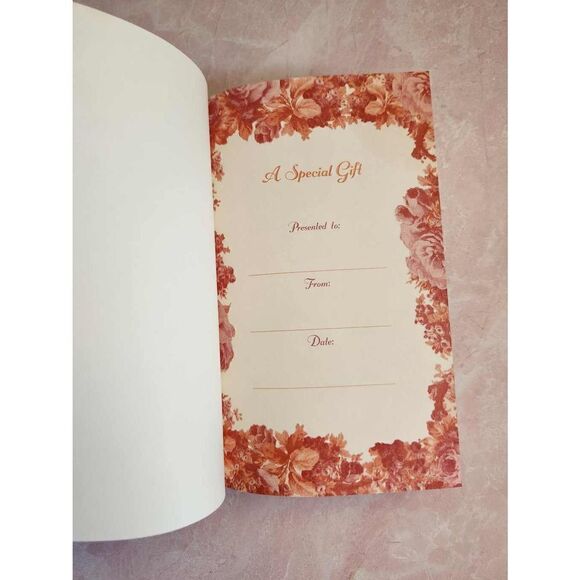 A Special Gift
Presented to:
From:
Date: